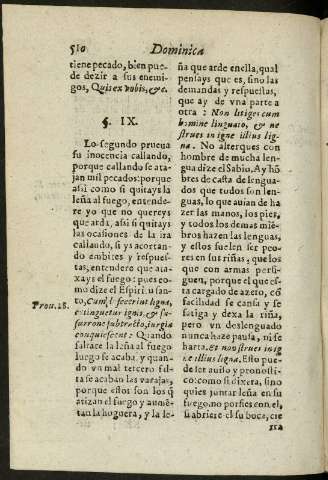 510 Dominica
tiene pecado, bien pue-
de dezir a sus enemi-
gos, Quis ex vobis, &c.
§. IX.
Lo segundo prueua
su inocencia callando,
porque callando se ata-
jan mil pecados: porque
assi como si quitays la
leña al fuego, entende-
re yo que no quereys
que arda, assi si quitays
las ocasiones de la ira
callando, si ys acortan-
do embites y respues-
tas, entendere que ata-
xays el fuego: pues co-
mo dize el Espiri. u san-
Prou. 28.
to, Cum defecerint ligna,
extinguetur ignis, & su-
surrone subtracto, iurgia
conquiescent: Quando
faltare la leña al fuego
luego se acaba, y quan-
do vn mal tercero fal-
ta se acaban las varajas,
porque estos son los q̃
atizan el fuego y aumẽ-
tan la hoguera, y la le-
ña que arde en ella, qual
pensays que es, sino las
demandas y respuestas,
que ay de vna parte a
otra: Non litiges cum
homine linguato, & ne
strues in igne illius lig-
na. No alterques con
hombre de mucha len-
gua dize el Sabio. Ay hõ
bres de casta de lengua-
dos que todos son len-
guas, lo que auian de ha
zer las manos, los pies,
y todos los demas miẽ-
bros hazen las lenguas,
y estos suelen ser peo-
res en sus riñas, que los
que con armas persi-
guen, porque el que es-
ta cargado de azero, cõ
facilidad se cansa y se
fatiga y dexa la riña,
pero vn deslenguado
nunca haze pausa, ni se
harta. Et non strues in ig
ne illius ligna. Esto pue-
de ser auiso y pronosti-
co: como si dixera, sino
quieres juntar leña en su
fuego, no porfies con el,
si abriere el su boca, cie
rra